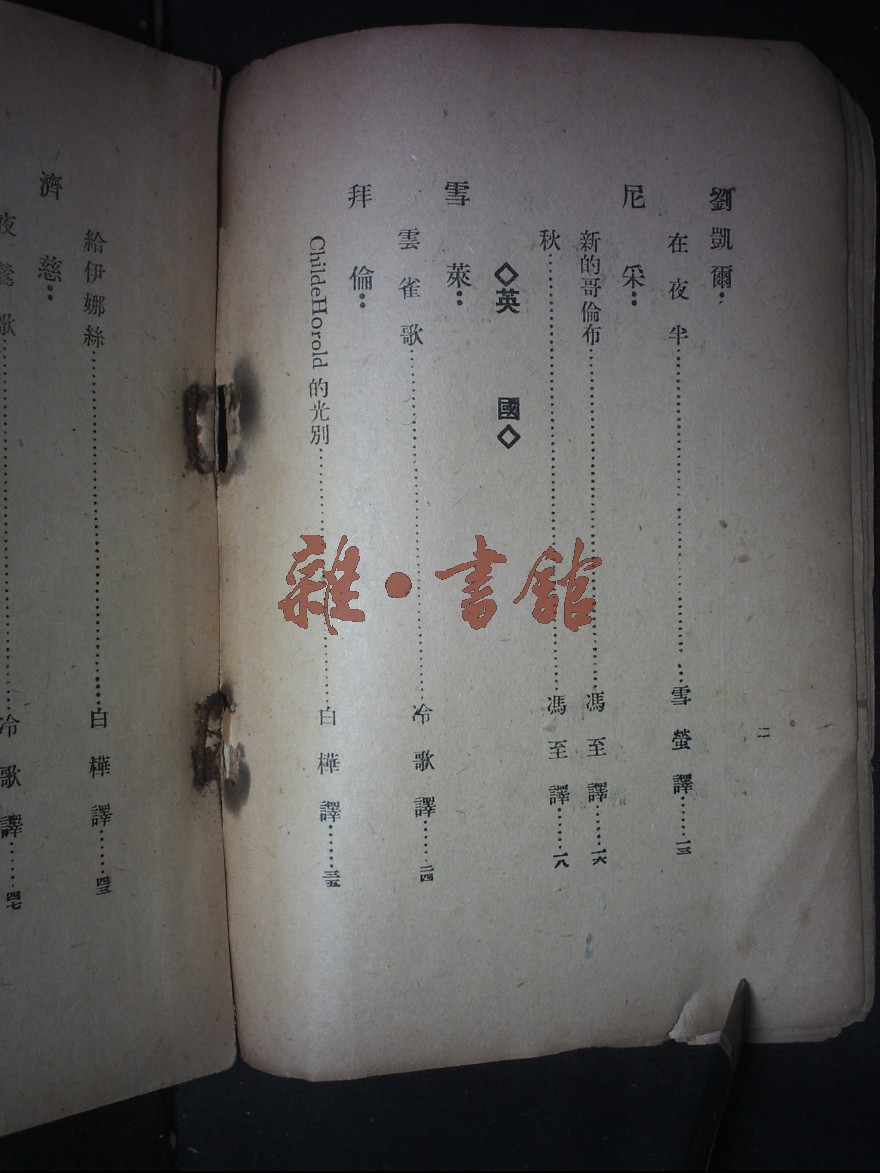 二
劉凱爾：
在夜半……雪螢譯……一三
尼采：
新的哥倫布……馮至譯……一六
秋……馮至譯……一八
◇英國◇
雪萊：
雲雀歌……冷歌譯……二四
拜倫：
ChildeHorold 的光別……白樺譯……三五
給伊娜絲……白樺譯……四三
濟慈：
夜鶯歌……冷歌譯……四七
雜·書館